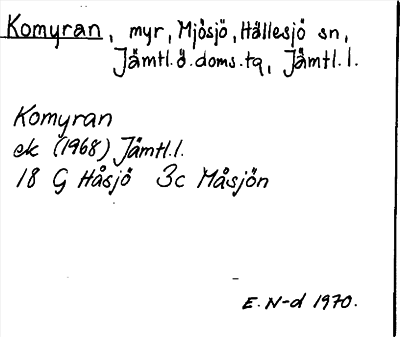 Komyran, myr, Mjösjö, Hällesjö sn,
Jämtl.ö.doms.tg, Jämtl.l.
Komyran
ek (1968) Jämtl.l.
18 G Håsjö 3c Måsjön
E. N-d 1970.